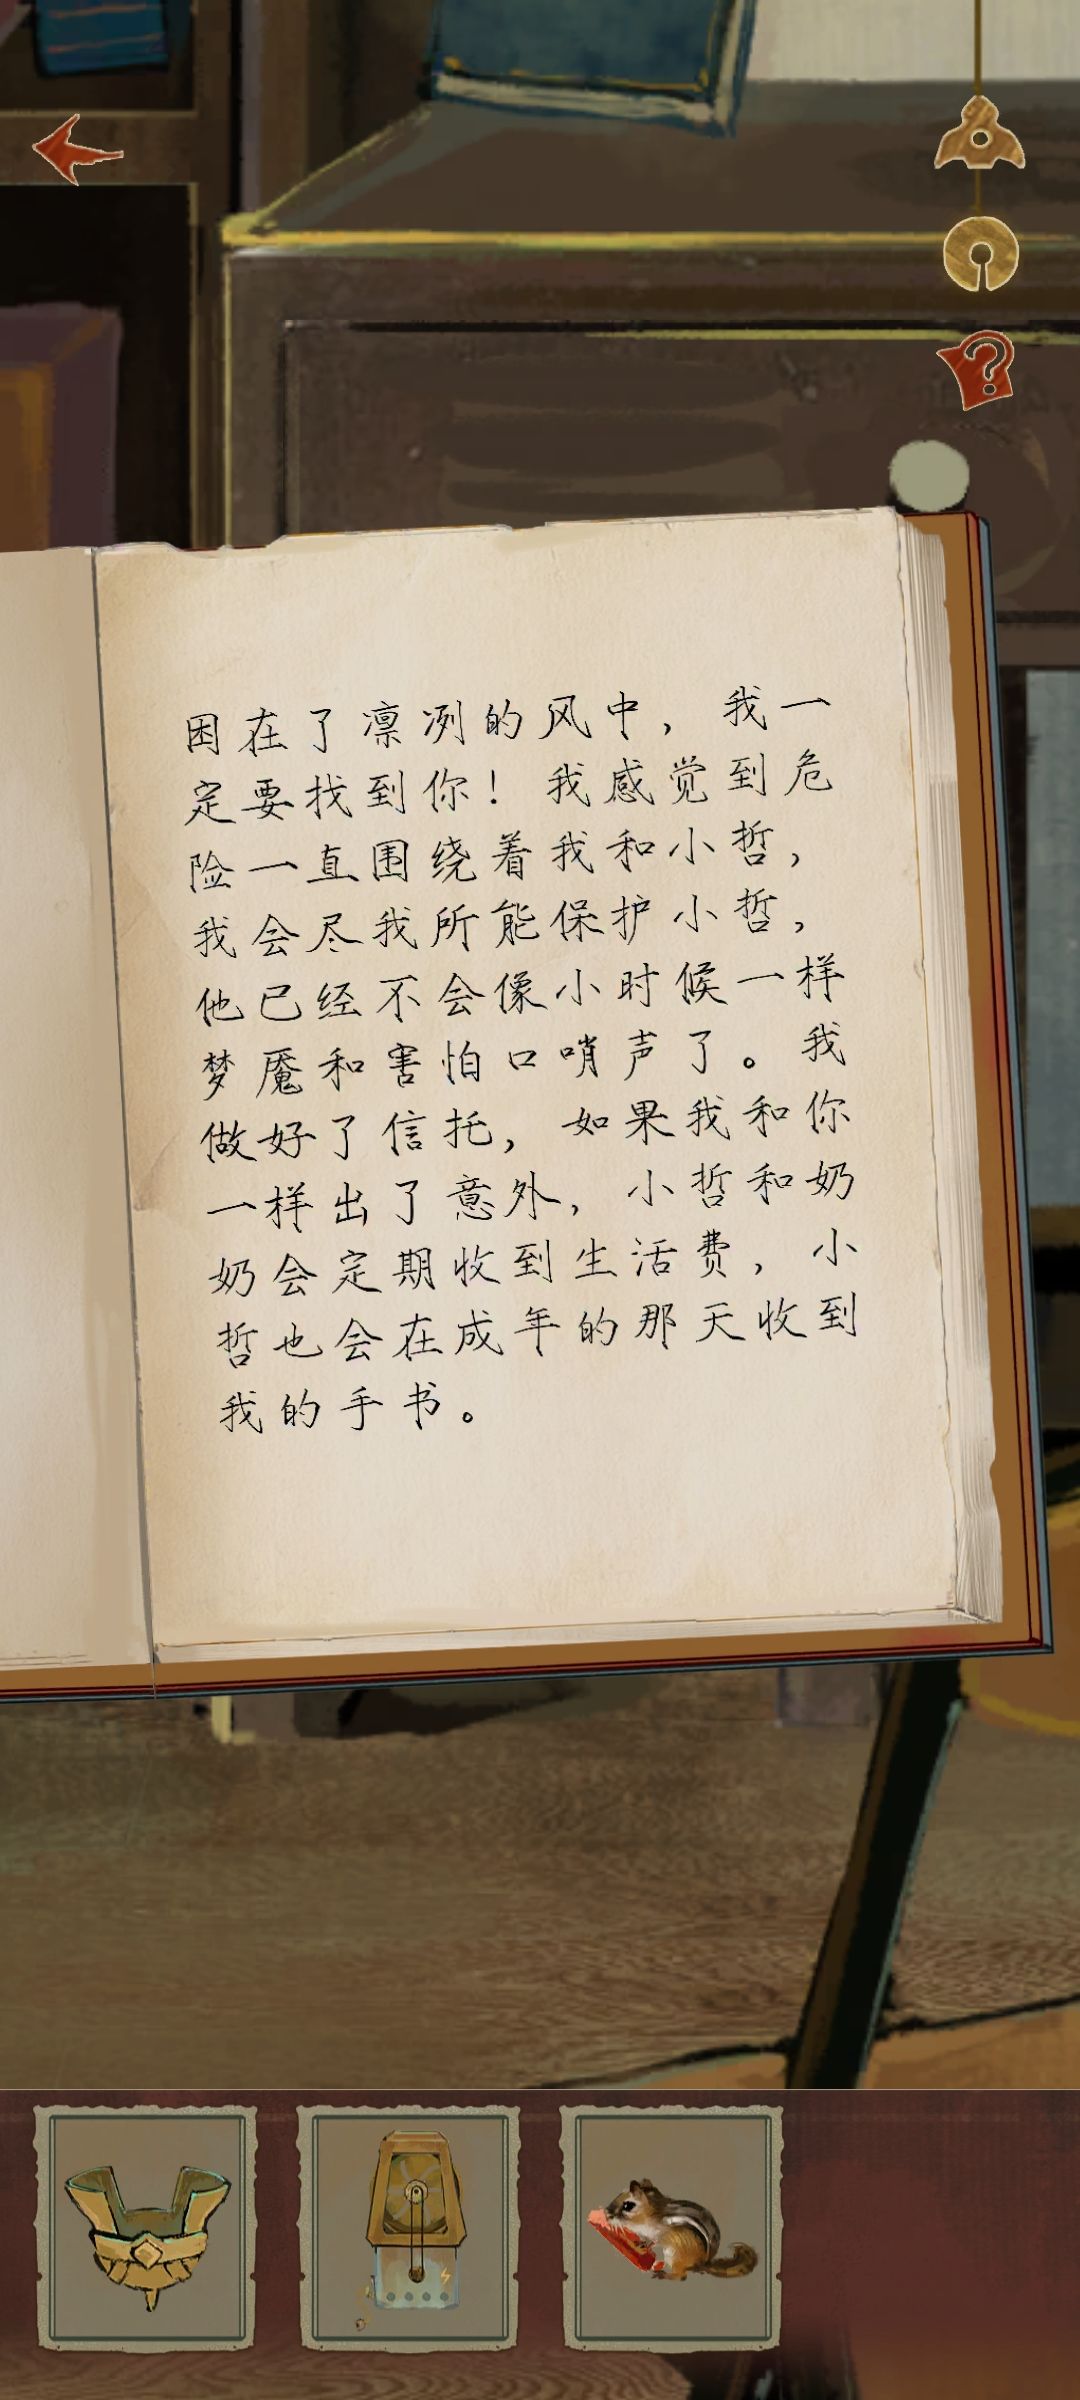 困在了凛冽的风中，我一
定要找到你！我感觉到危
险一直围绕着我和小哲，
我会尽我所能保护小哲，
他已经不会像小时候一样
梦魇和害怕口哨声了。我
做好了信托，如果我和你
一样出了意外，小哲和奶
奶会定期收到生活费，小
哲也会在成年的那天收到
我的手书。